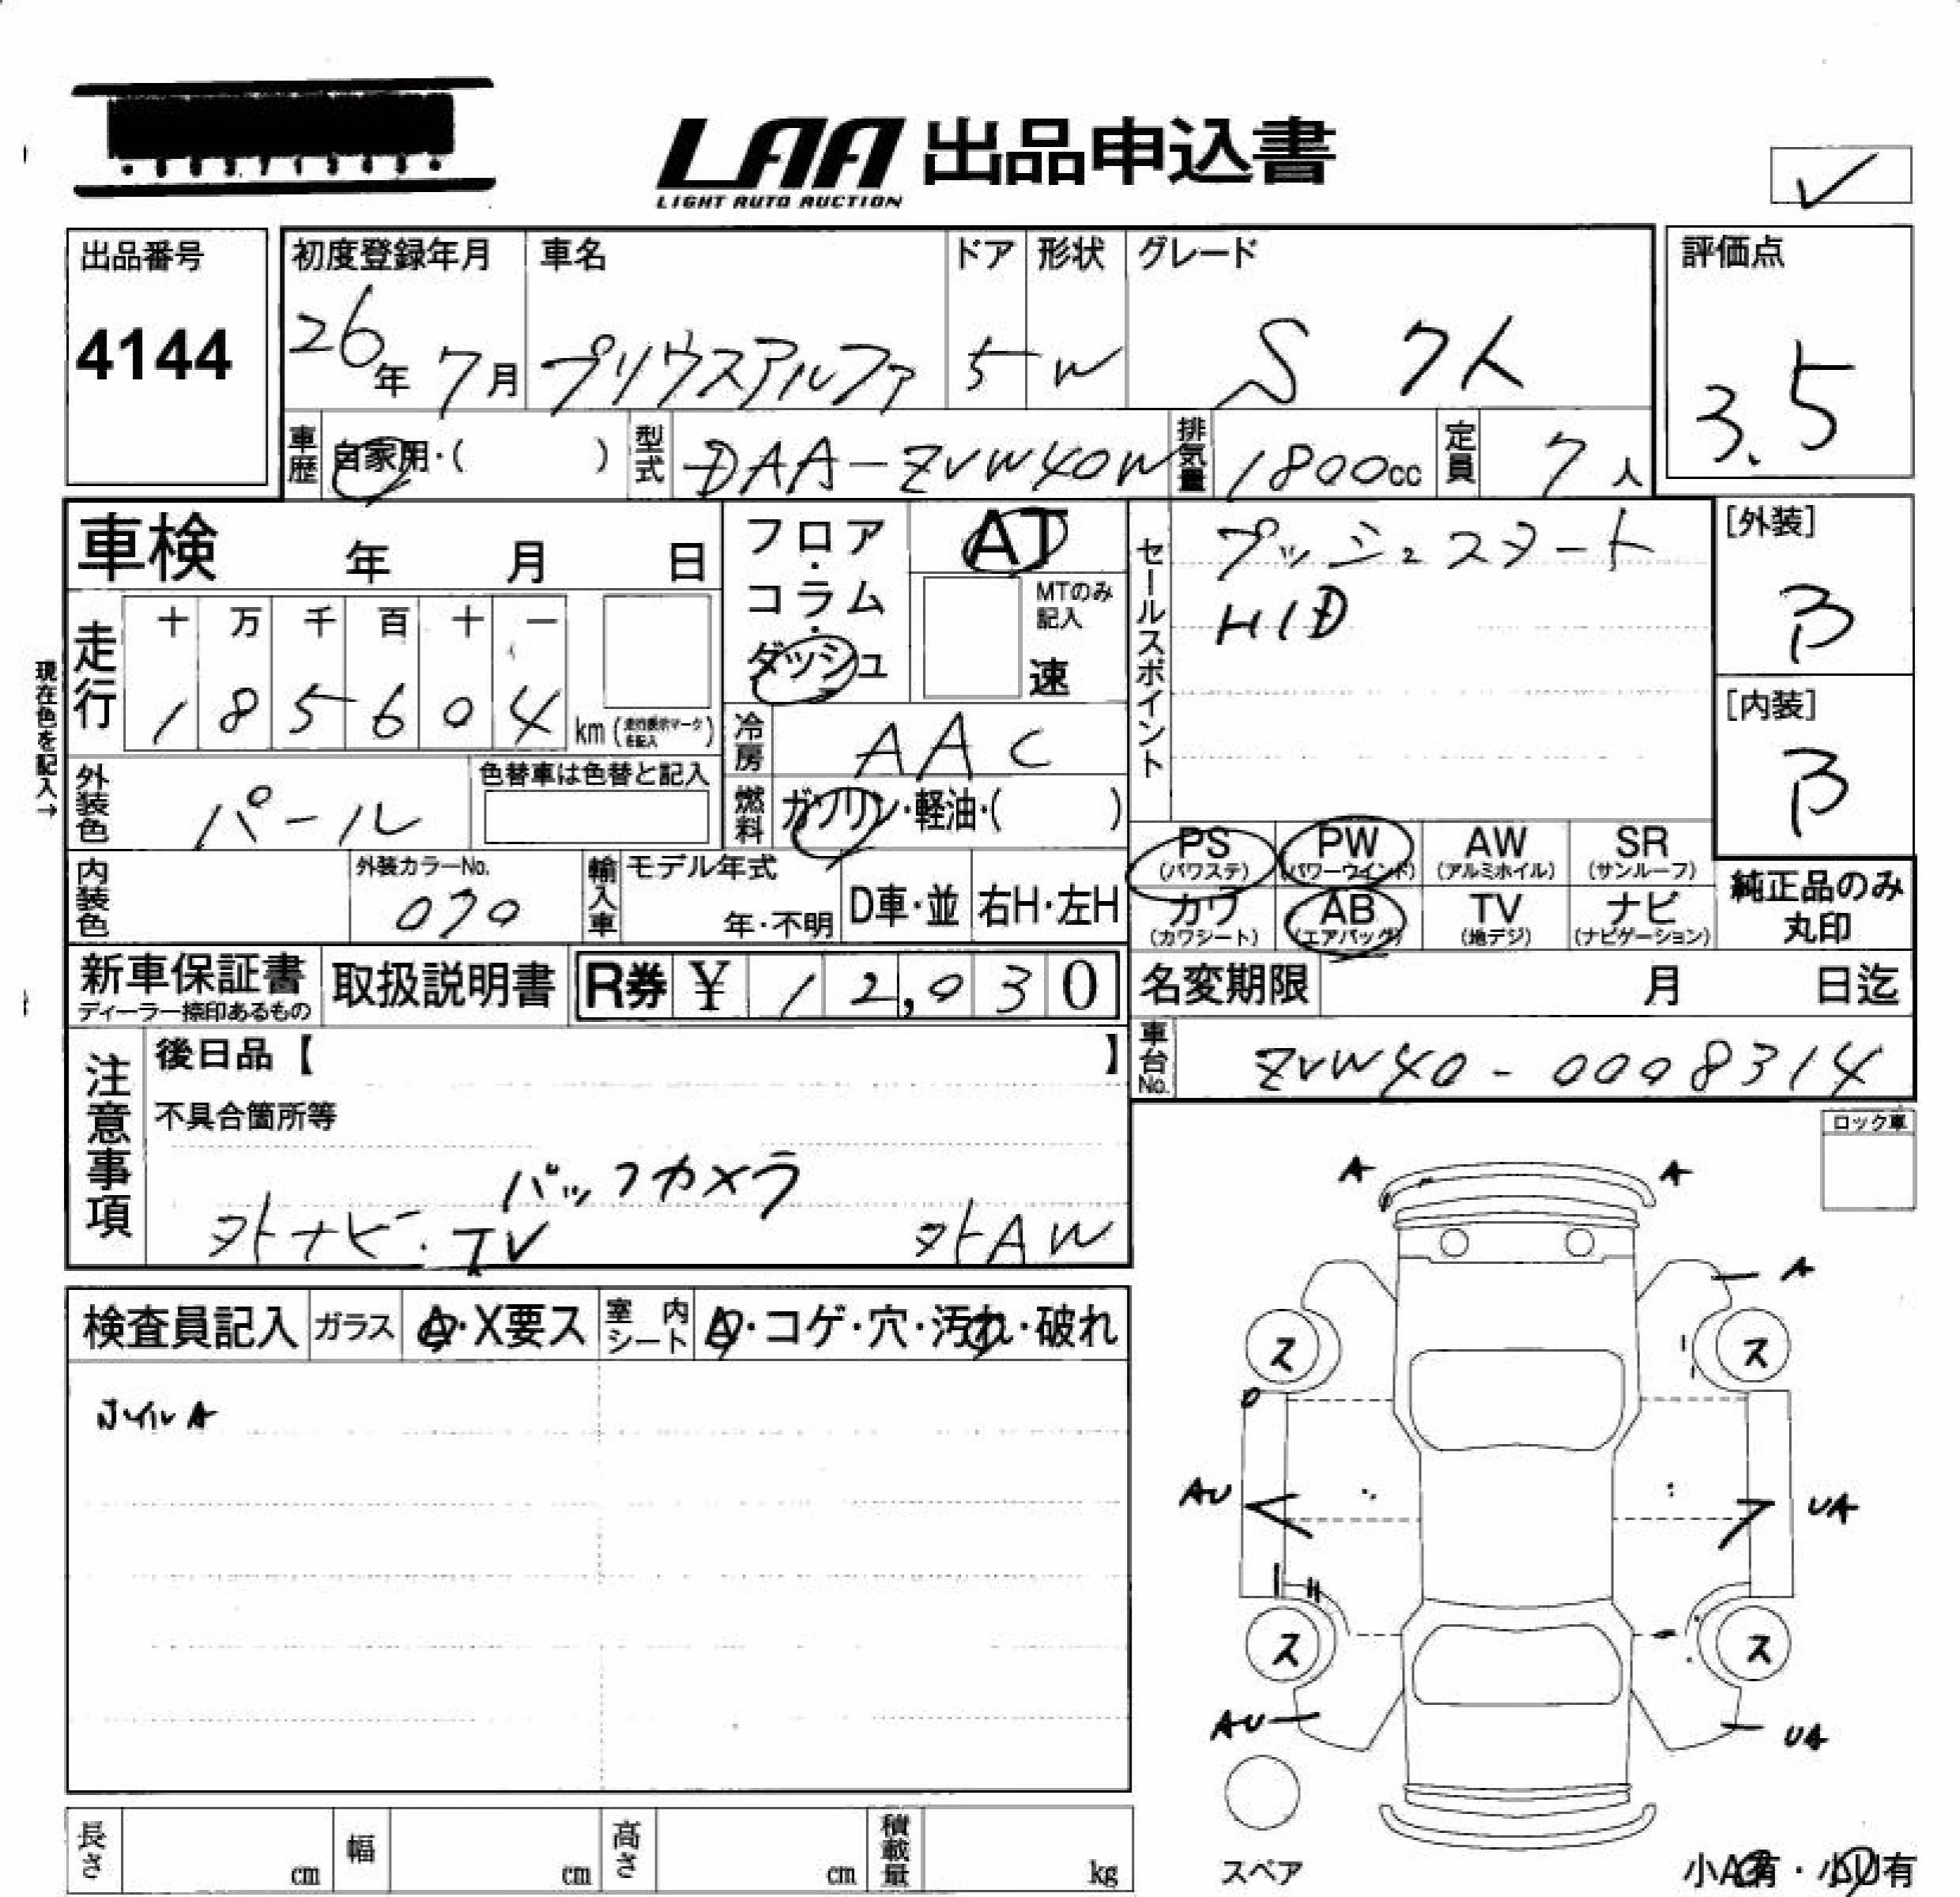 LAA 出品申込書
LIGHT AUTO AUCTION
✓
出品番号 4144
初度登録年月 26年 7月
車名 プリウスアルファ
ドア 5
形状 W
グレード S 7人
評価点 3.5
車歴 自家用・( )
型式 DAA-ZVW40W
排気量 1800cc
定員 7人
車検 年 月 日
フロア・コラム・ダッシュ
AT
MTのみ記入
速
セールスポイント
プッシュスタート
HID
[外装] B
[内装] B
現在色を記入→
走行 十 万 千 百 十 一
1 8 5 6 0 4 km (走行表示マークを記入)
冷房 AAC
外装色 パール
色替車は色替と記入
燃料 ガソリン・軽油・( )
PS (パワステ)
PW (パワーウインド)
AW (アルミホイル)
SR (サンルーフ)
カワ (カワシート)
AB (エアバッグ)
TV (地デジ)
ナビ (ナビゲーション)
純正品のみ丸印
内装色
外装カラーNo. 070
輸入車 モデル年式 年・不明
D車・並
右H・左H
新車保証書
ディーラー捺印あるもの
取扱説明書
R券 ¥ 12,030
名変期限 月 日迄
車台No. ZVW40-0008314
注意事項
後日品【 】
不具合箇所等
バックカメラ
外ナビ・TV 外AW
ロック車
検査員記入 ガラス A・X要ス 室内シート A・コゲ・穴・汚れ・破れ
A A
A
ス ス
AU UA
ス ス
AU UA
スペア
小A有・小U有
長さ cm 幅 cm 高さ cm 積載量 kg